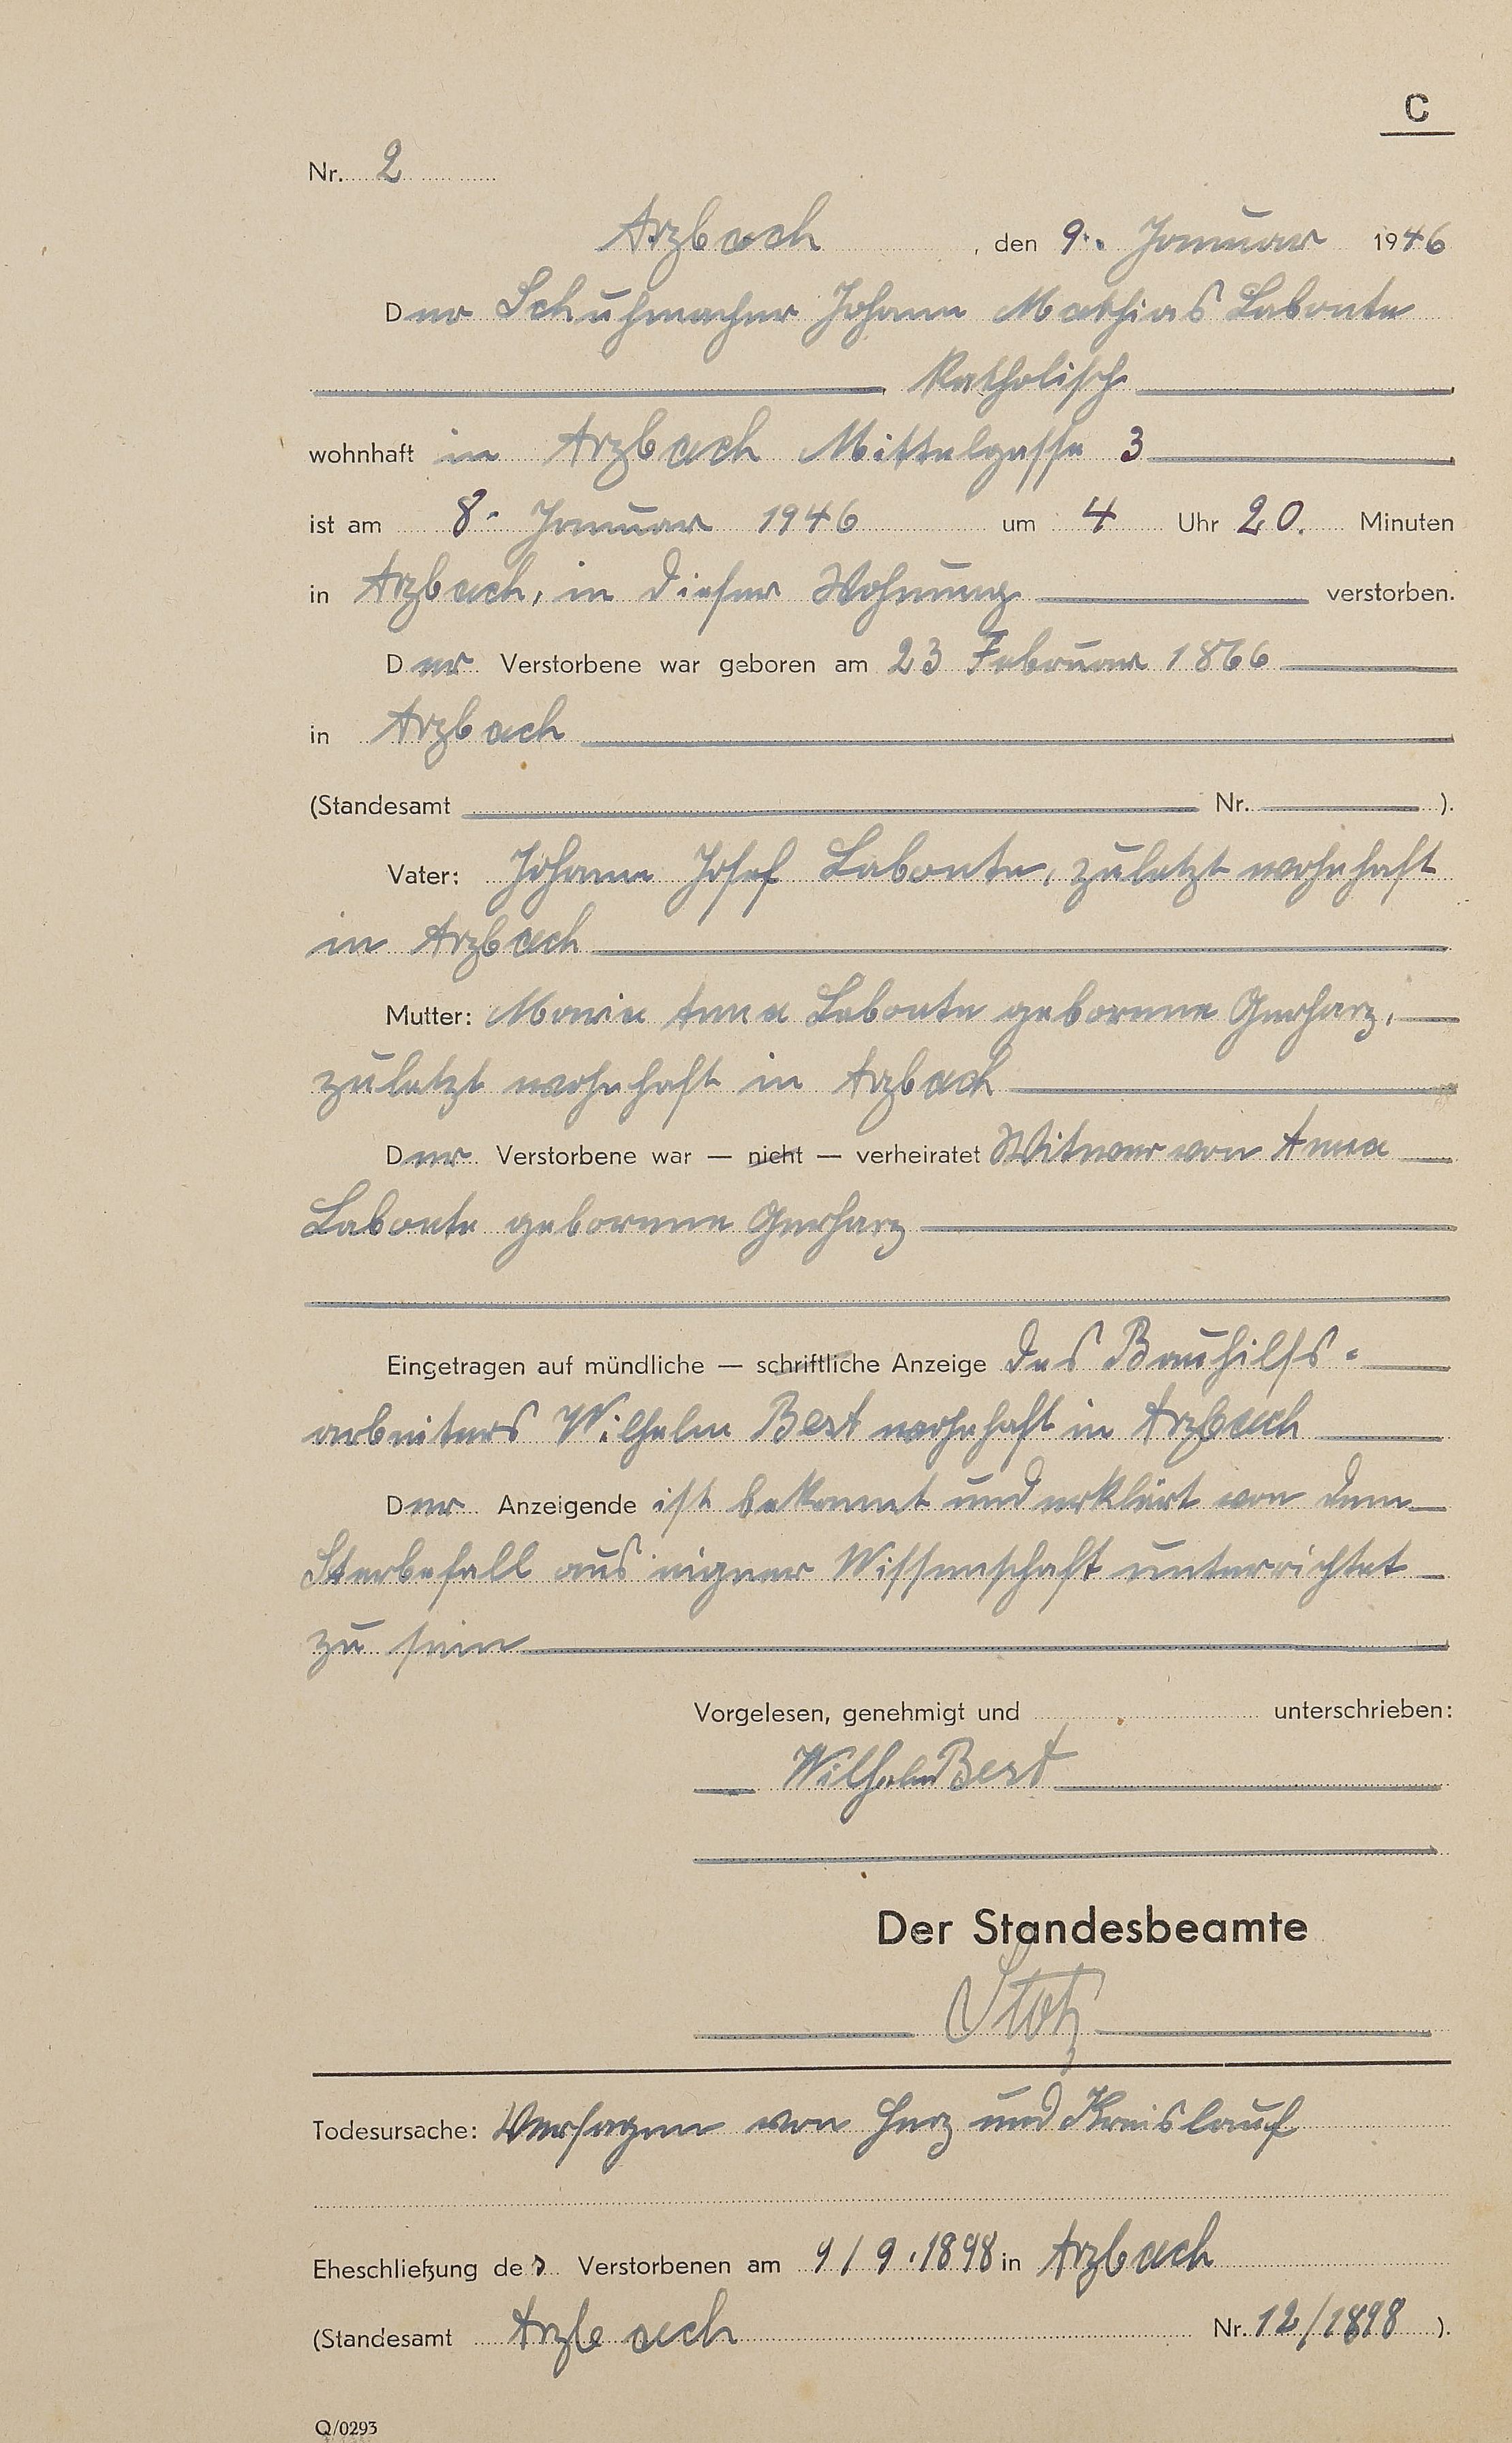 C
Nr. 2
Arzbach, den 9. Januar 1946
Der Schuhmacher Johann Mathias Labonte
Katholisch
wohnhaft in Arzbach Mittelgasse 3
ist am 8. Januar 1946 um 4 Uhr 20. Minuten
in Arzbach, in dieser Wohnung verstorben.
Der Verstorbene war geboren am 23 Februar 1866
in Arzbach
(Standesamt Nr. ).
Vater: Johann Josef Labonte, zuletzt wohnhaft
in Arzbach
Mutter: Maria Anna Labonte geborene Gerharz,
zuletzt wohnhaft in Arzbach
Der Verstorbene war — nicht — verheiratet Witwer von Anna
Labonte geborene Gerharz
Eingetragen auf mündliche — schriftliche Anzeige des Bauhilfs-
arbeiters Wilhelm Best wohnhaft in Arzbach
Der Anzeigende ist bekannt und erklärt von dem
Sterbefall aus eigner Wissenschaft unterrichtet
zu sein
Vorgelesen, genehmigt und unterschrieben:
Wilhelm Best
Der Standesbeamte
Stotz
Todesursache: Versagen von Herz und Kreislauf
Eheschließung des Verstorbenen am 9.1898 in Arzbach
(Standesamt Arzbach Nr. 12/1898 ).
Q/0293